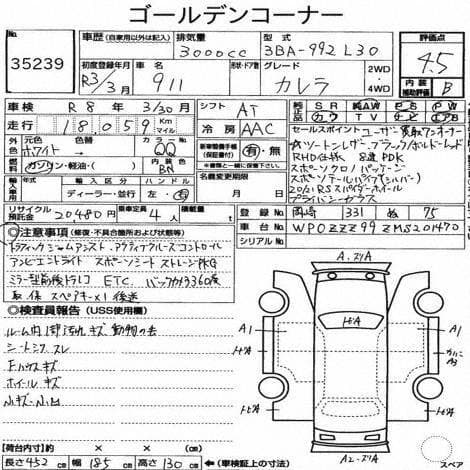 ゴールデンコーナー
35239
車歴(自家用以外は記入)
排気量 3000cc
型式 3BA-992L30
評価点 4.5
内装補助評価 B
初度登録年月 R3/3月
車名 911
形状・ドア数
グレード カレラ
2WD・4WD
車検 R8年3/30月
シフト AT
走行 18,059 Km マイル
冷房 AAC
元色 ホワイト
色替
燃料 ガソリン・軽油・( )
内装色 BN
車両整備手帳(保証書付) 有・無
名義変更期限
輸入車
ディーラー・並行
ハンドル 左・右
リサイクル預託金 20480円
乗車定員 4人
積載量 t
SR AW PS PW
TV
セールスポイント ユーザー買取ワンオーナー
ツートンレザー ブラック/ボルドーレッド
RHD 8速PDK
スポーツクロノパッケージ
スポーツテールパイプ(シルバー)
20/21 RSスパイダーホイール
プライバシーガラス
登録 岡崎 331 ぬ 75
車台 WP0ZZZ99ZMS201470
シリアルNo.
◎注意事項(修復・不具合箇所および状態等)
トラフィックジャムアシスト アクティブクルーズコントロール
アンビエントライト スポーツシート ストレージPKG
ミラー型前後ドラレコ ETC バックカメラ360度
取保 スペアキー×1後送
◎検査員報告(USS使用欄)
ルーム内 汚れ キズ 動物の毛
シート シワ スレ
Fハウスキズ
ホイールキズ
小キズ 小凹
A・スリA
A1
HA
A2・スリA
スペア
(荷台内寸) × ×
長さ452cm 幅185cm 高さ130cm ←(車検証上の寸法)